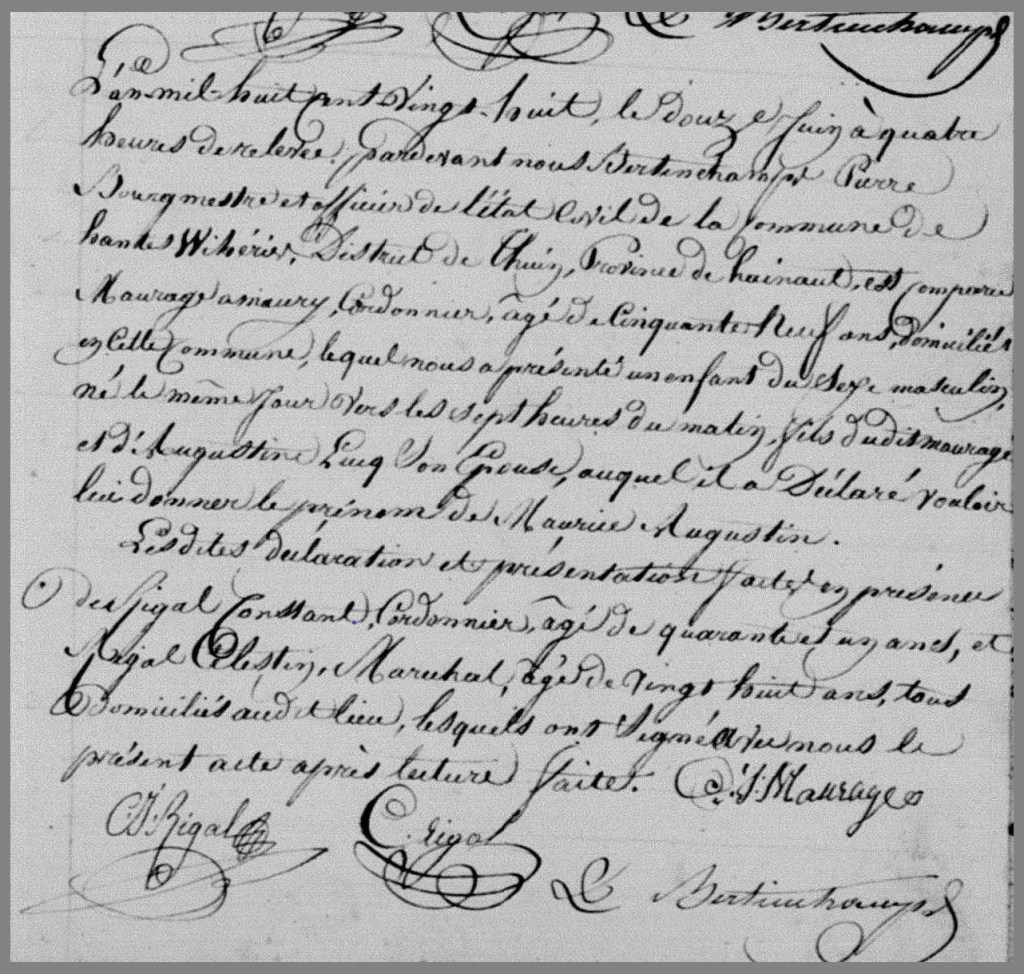 Bertinchamps
L'an mil huit cent vingt-huit, le douze juin à quatre
heures de relevée, pardevant nous Bertinchamps Pierre
Bourgmestre et officier de l'état civil de la commune de
hantes Wihéries, District de Thuin, Province de hainaut, est comparu
Maurage amaury, Cordonnier, âgé de Cinquante Neuf ans, domicilié
en cette Commune, lequel nous a présenté un enfant du sexe masculin,
né le même jour vers les sept heures du matin, fils dudit maurage
et d'Augustine Lucq son Epouse, auquel il a Déclaré vouloir
lui donner le prénom de Maurice Augustin.
Lesdites déclaration et présentation faites en présence
de Rigal Constant, Cordonnier, âgé de quarante et un ans, et
Rigal Célestin, Maréchal, âgé de vingt huit ans, tous
Domiciliés audit lieu, lesquels ont signé avec nous le
présent acte après lecture faite. J. Maurage
C. J. Rigal C. rigal
Bertinchamps